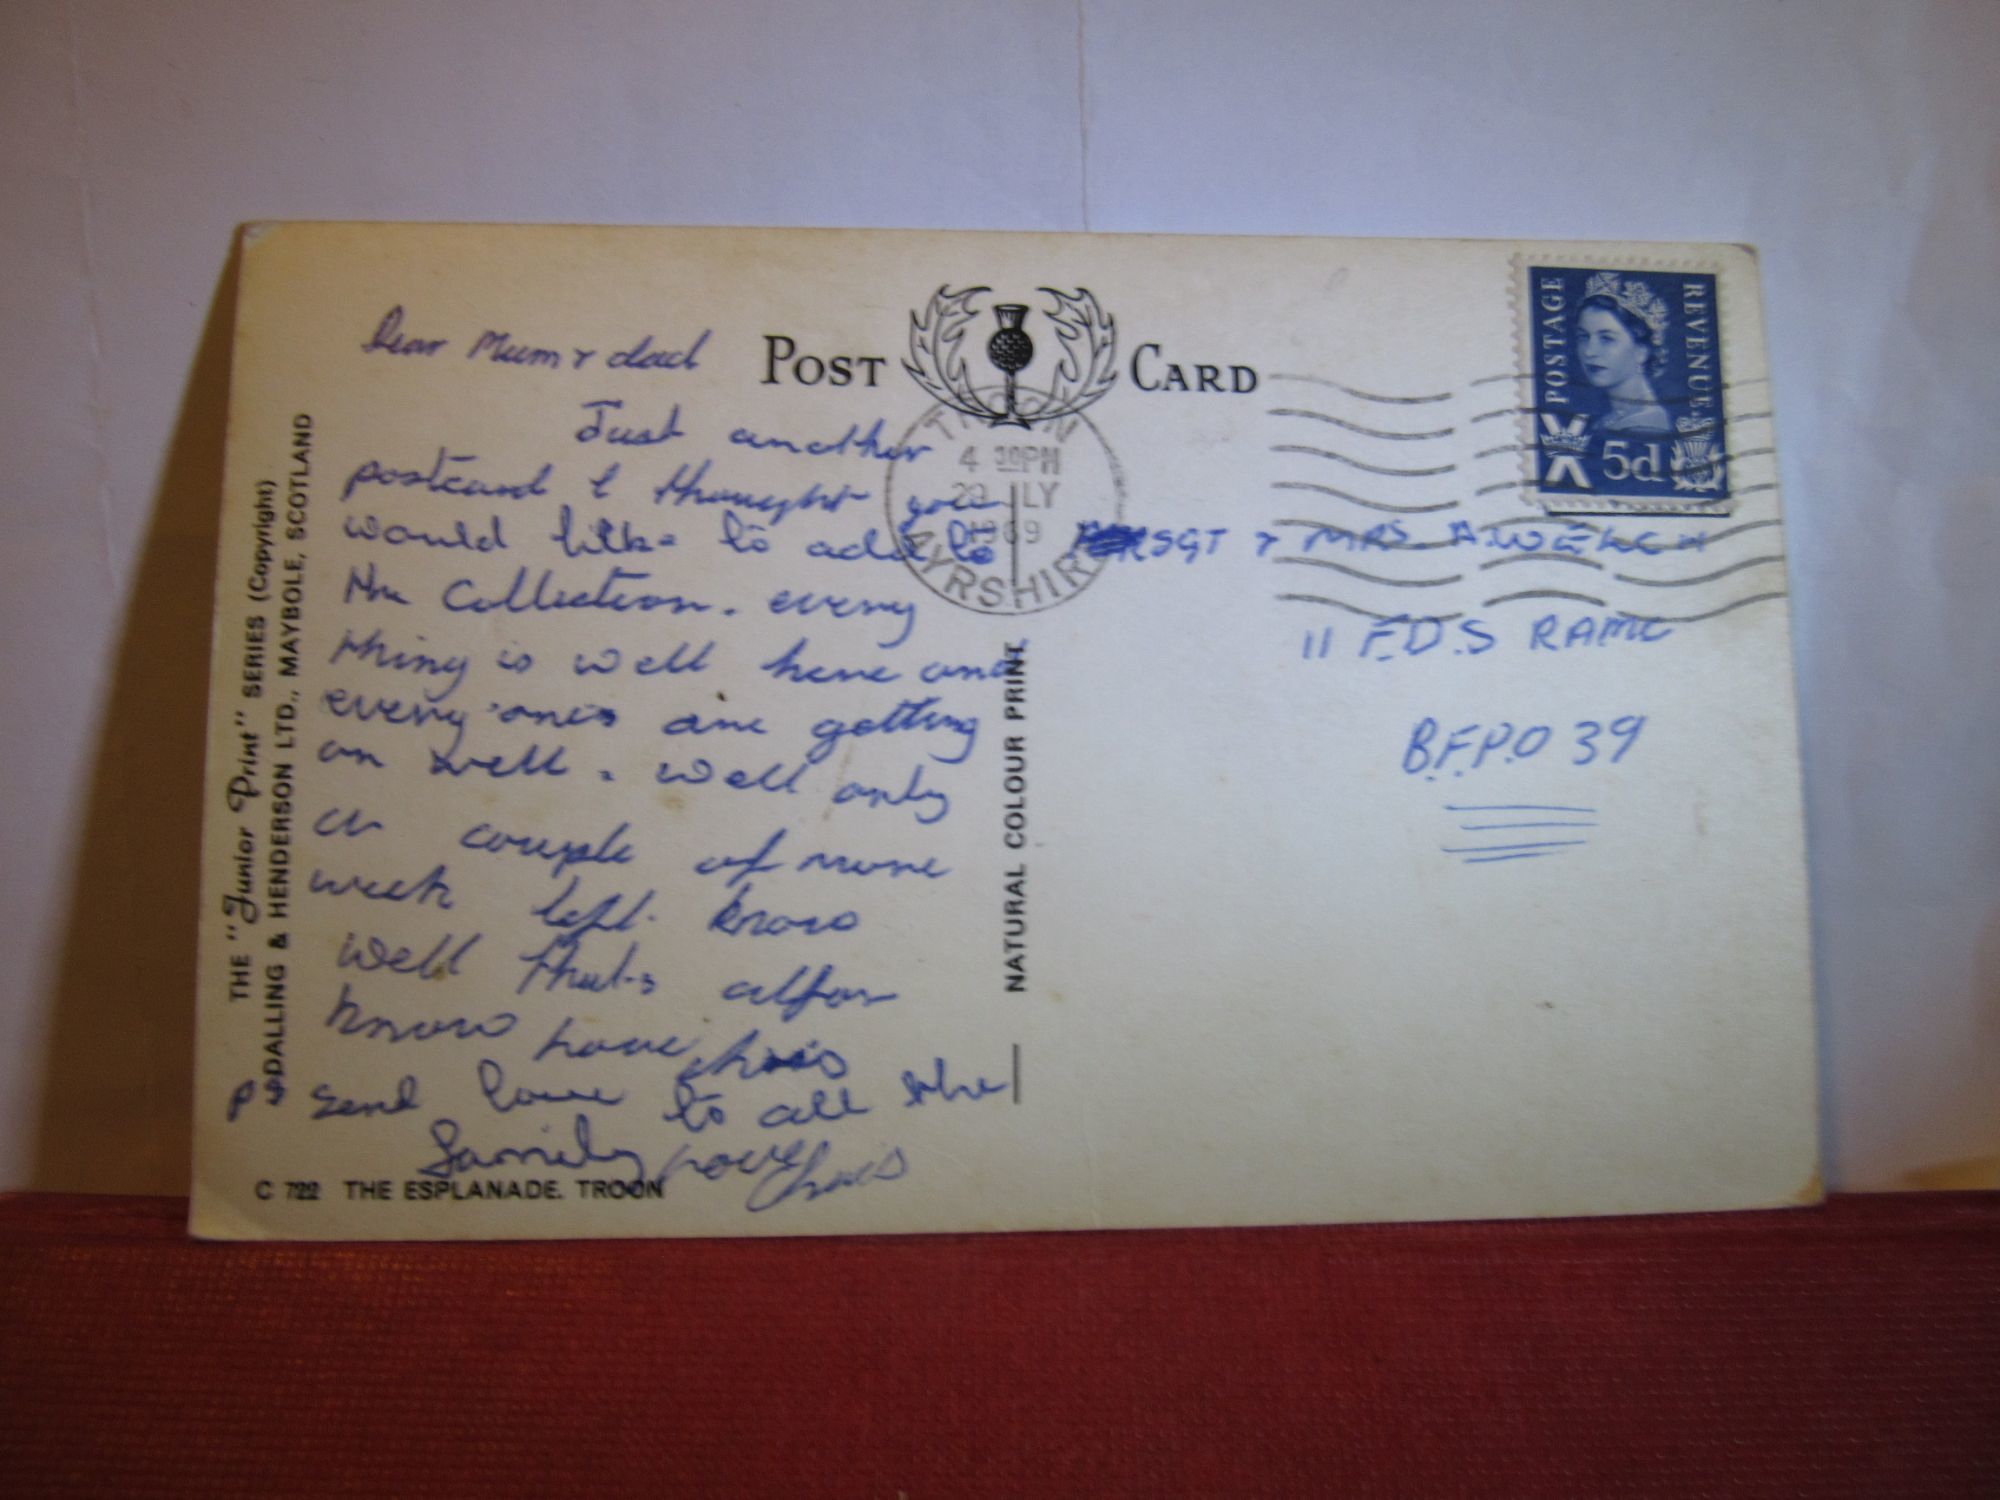 Dear Mum & dad
Just another
postcard I thought you
would like to add to
the Collection. every
thing is well here and
every one's are getting
on well. Well only
a couple of more
week left know
well that's all for
know love Chris
P S Send love to all the
family love Chris
POST CARD
TROON
4 30PM
1969
AYRSHIRE
POSTAGE
REVENUE
5d
SGT & MRS. A. WELCH
11 F.D.S RAMC
B.F.P.O 39
THE "Junior Print" SERIES (Copyright)
DALLING & HENDERSON LTD., MAYBOLE, SCOTLAND
NATURAL COLOUR PRINT
C 722 THE ESPLANADE. TROON